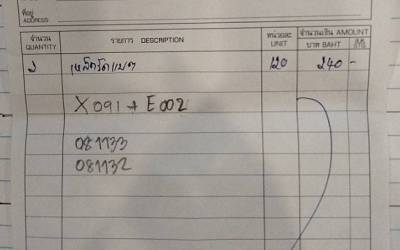 ที่อยู่
ADDRESS
จำนวน รายการ DESCRIPTION หน่วยละ จำนวนเงิน AMOUNT
QUANTITY UNIT บาท BAHT
2 120 240 -
X091 + E002
081133
081132